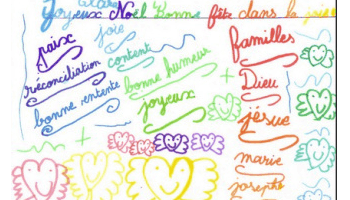 Joyeux Noël Bonne fête dans la joie
joie
paix
content
réconciliation
bonne humeur
bonne entente
joyeux
familles
Dieu
jésue
marie
joseph